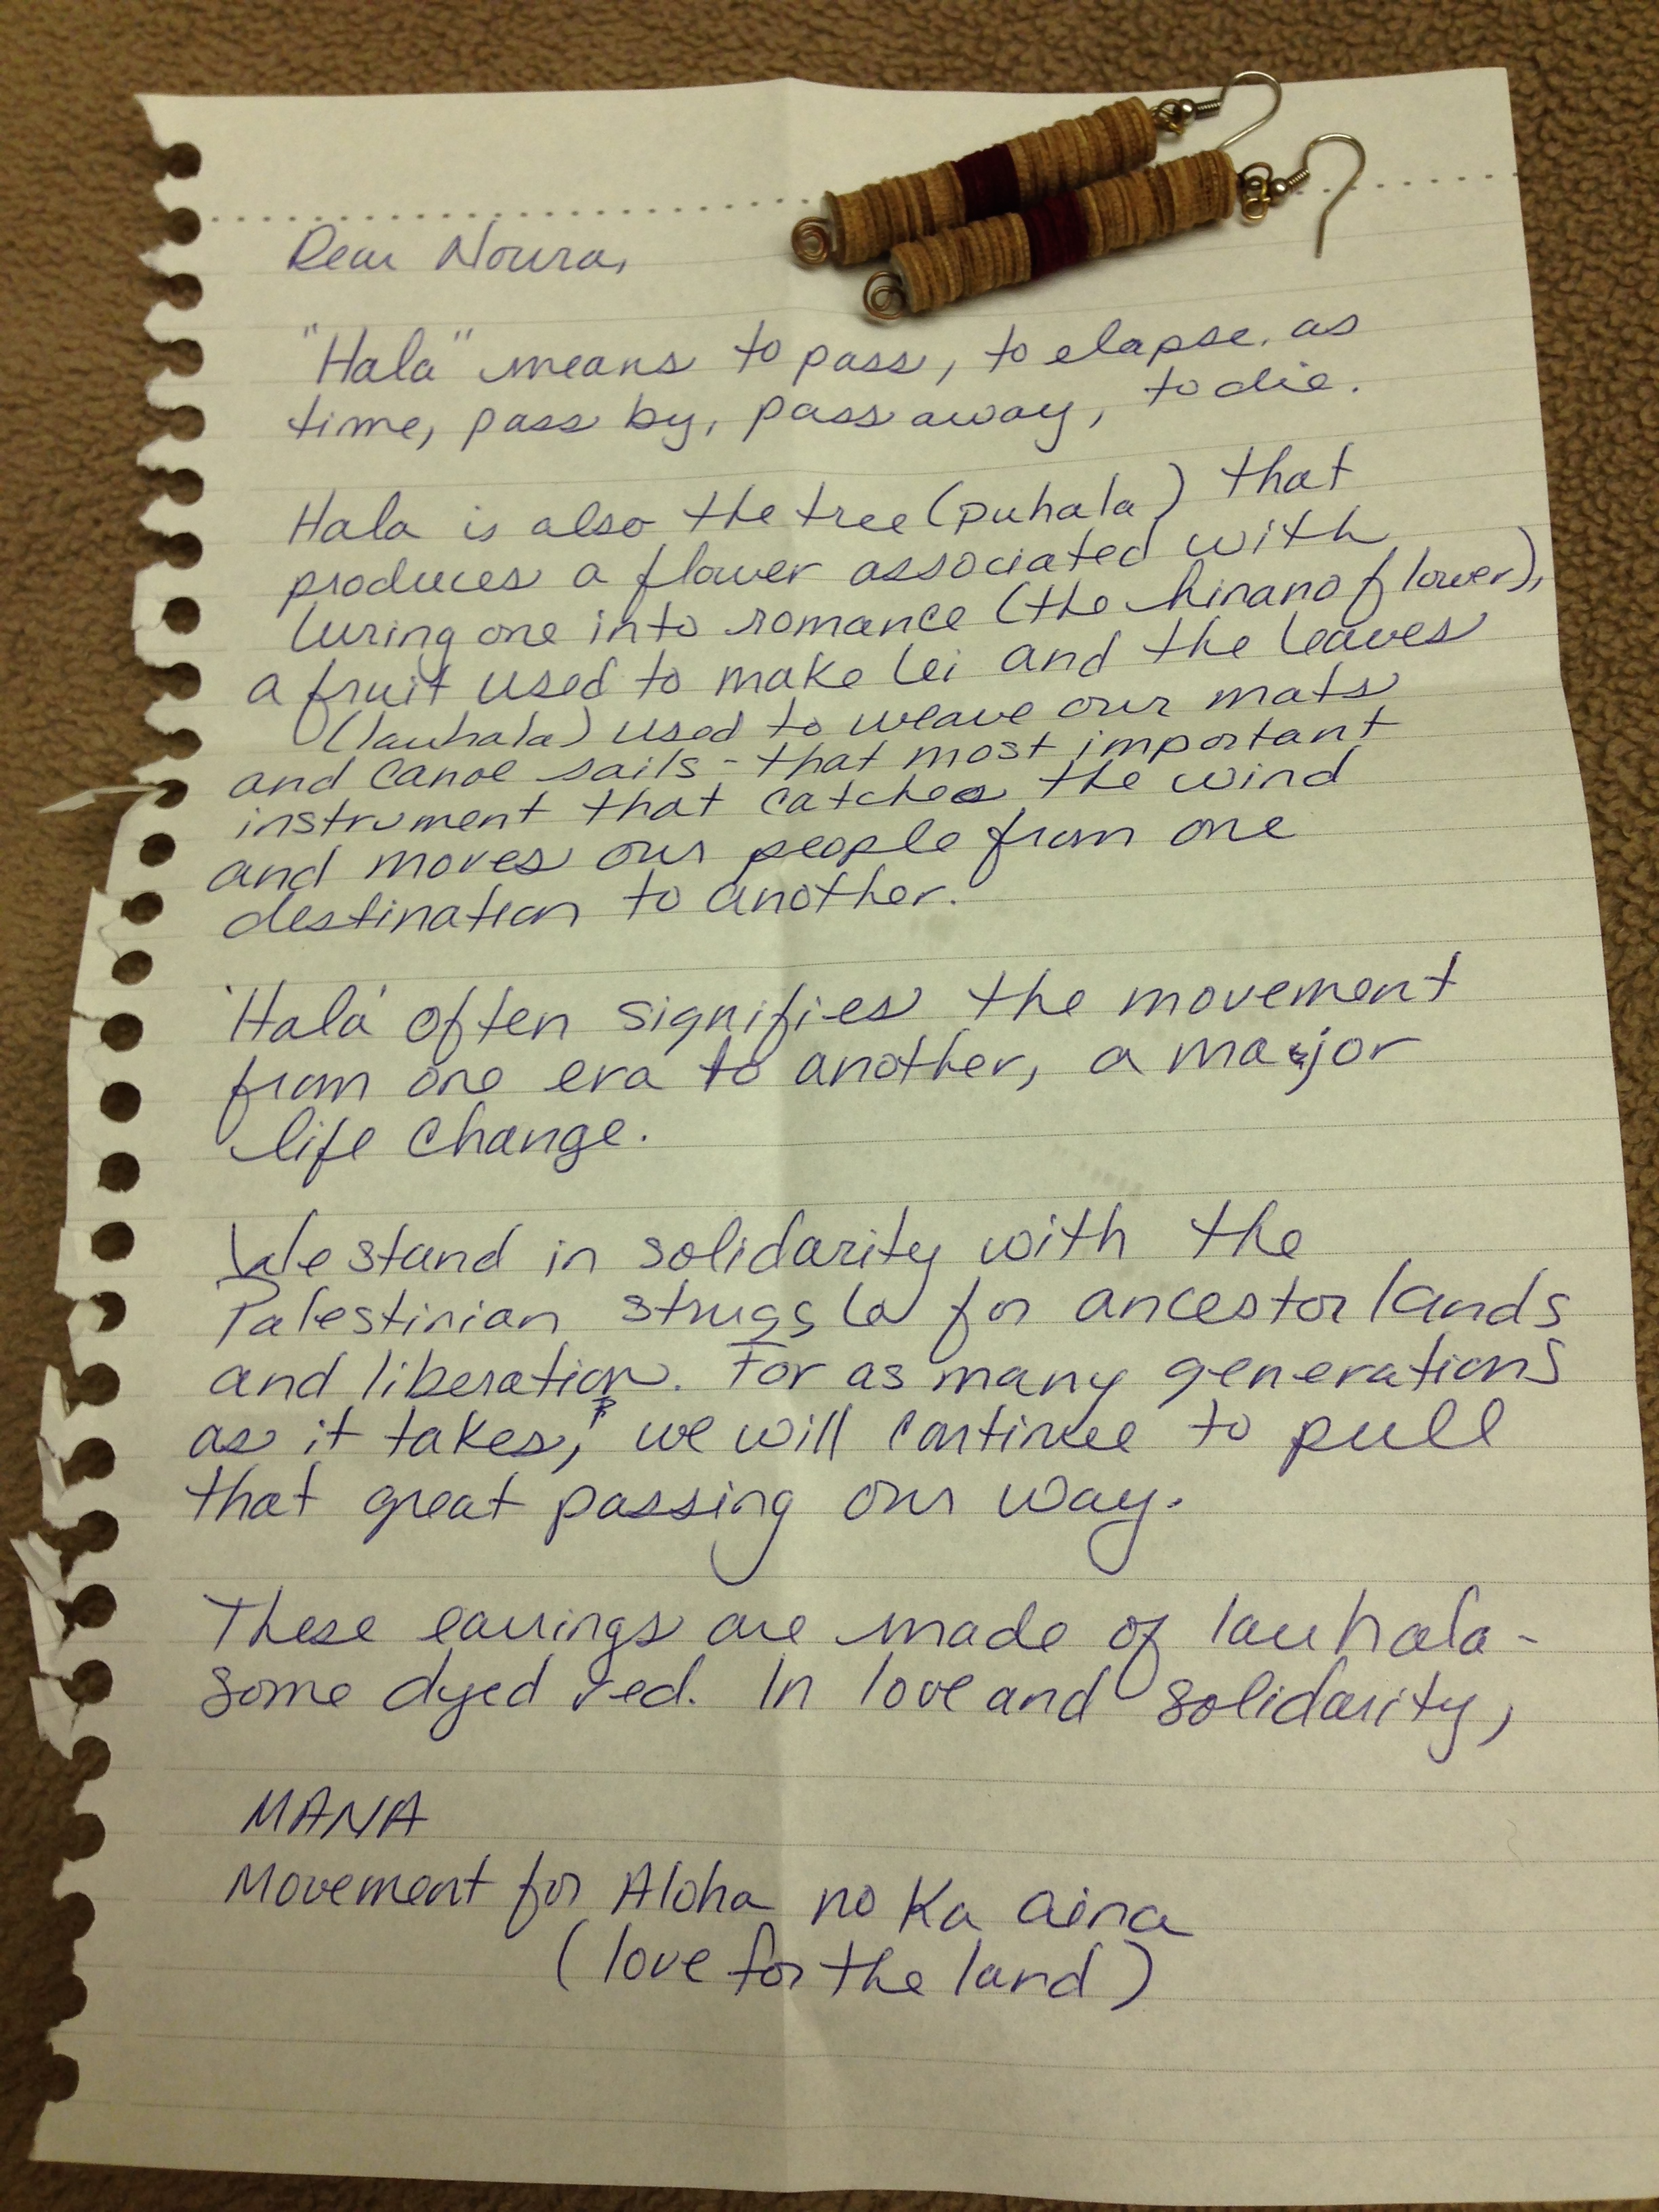 Dear Noura,
"Hala" means to pass, to elapse, as
time, pass by, pass away, to die.
Hala is also the tree (puhala) that
produces a flower associated with
luring one into romance (the hinano flower),
a fruit used to make lei and the leaves
(lauhala) used to weave our mats
and canoe sails - that most important
instrument that catches the wind
and moves our people from one
destination to another.
'Hala' often signifies the movement
from one era to another, a major
life change.
We stand in solidarity with the
Palestinian struggle for ancestor lands
and liberation. For as many generations
as it takes, we will continue to pull
that great passing our way.
These earrings are made of lauhala -
some dyed red. In love and solidarity,
MANA
Movement for Aloha no Ka aina
(love for the land)